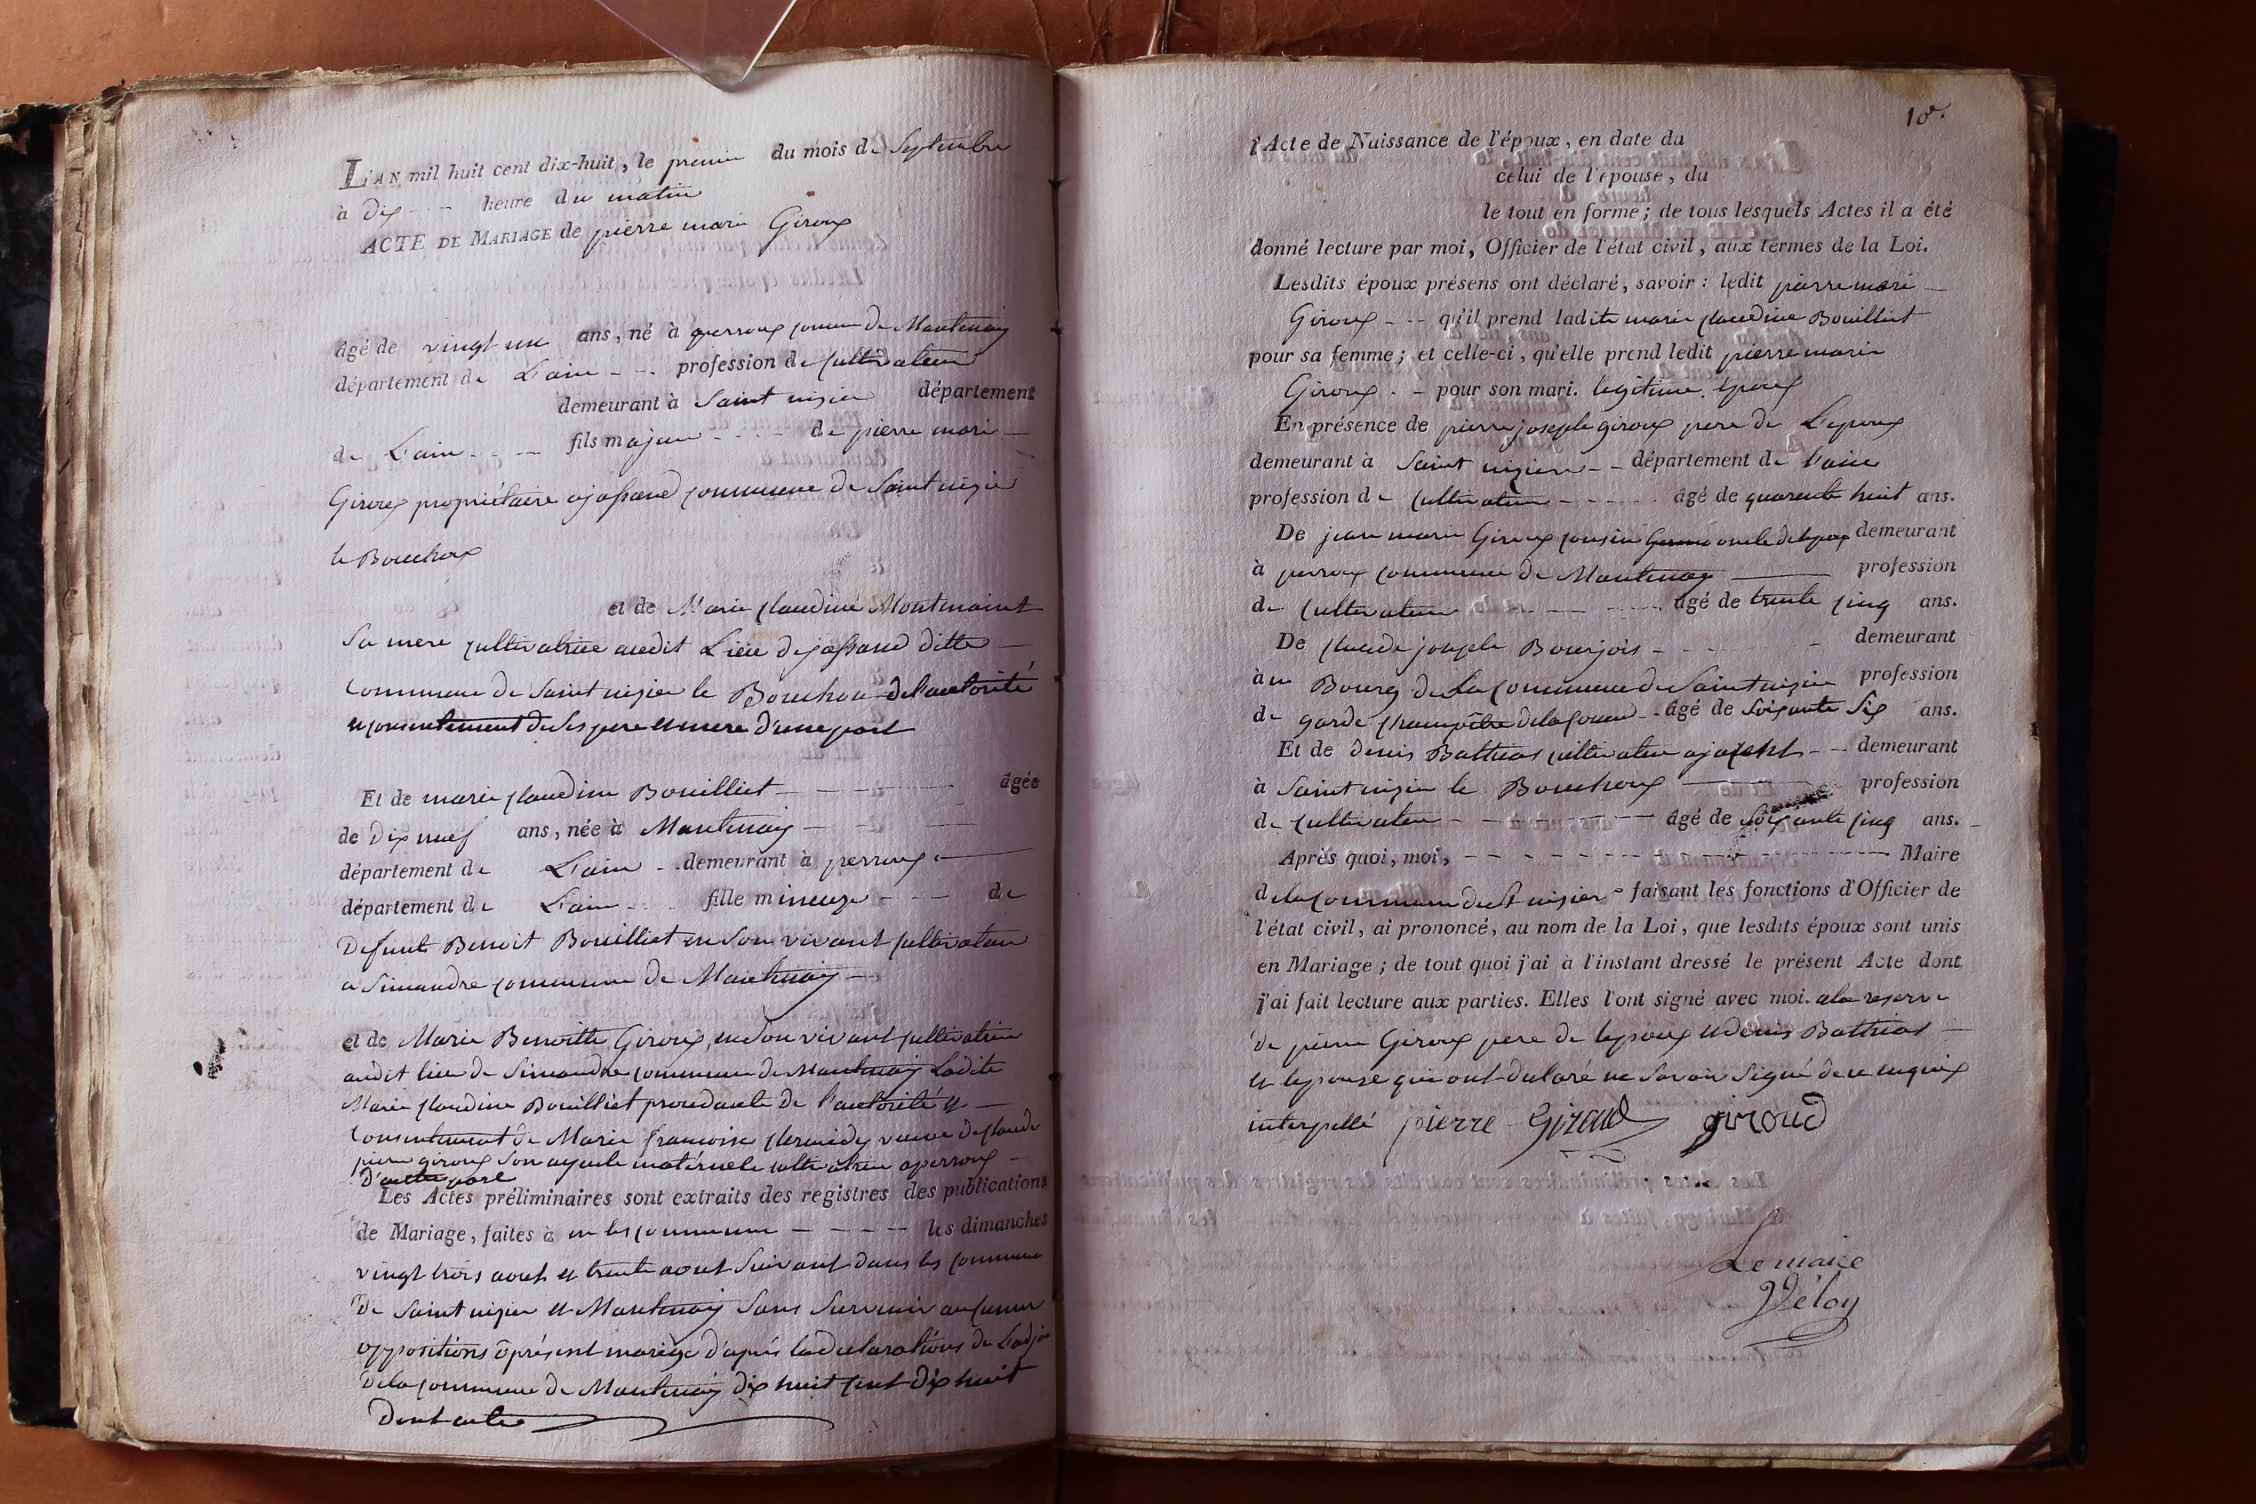 L'AN mil huit cent dix-huit, le premier du mois de Septembre
à Dix heure du matin
ACTE DE MARIAGE de pierre marie Giroux
âgé de vingt un ans, né à perroux comune de Mantenay
département de L'ain profession de Cultivateur
demeurant à Saint nizier département
de L'ain fils majeur de pierre marie
Giroux propriétaire a commune de Saint nizier
le Bouchoux
et de Marie Claudine Montmaint
Sa mere Cultivatrice audit Lieu ditte
Commune de Saint nizier le Bouchou de l'autorité
et consentement de ses pere et mere d'une part
Et de marie Claudine Bouilliet âgée
de Dix neuf ans, née à Mantenay
département de L'ain demeurant à perroux
département de L'ain fille mineure de
Defunt Benoit Bouilliet en son vivant Cultivateur
a Simandre Commune de Mantenay
et de Marie Benoitte Giroux, en son vivant Cultivatrice
audit lieu de Simandre commune de Mantenay Ladite
Marie Claudine Bouilliet procedante de l'autorité et
Consentement de Marie francoise veuve De Claude
pierre giroux son ayeule maternele cultivatrice a perroux
D'autre part
Les Actes préliminaires sont extraits des registres des publications
de Mariage, faites à en les Commune les dimanches
vingt trois aout et trente aout suivant dans les Commune
De Saint nizier et Mantenay Sans Survenir aucunne
oppositions present mariage d'après la declarations de L'adj
De la Commune de Mantenay dix huit Cent Dix huit
Dont acte
10.
l'Acte de Naissance de l'époux, en date du
celui de l'épouse, du
le tout en forme; de tous lesquels Actes il a été
donné lecture par moi, Officier de l'état civil, aux termes de la Loi.
Lesdits époux présens ont déclaré, savoir: ledit pierre marie
Giroux qu'il prend ladite marie Claudine Bouilliet
pour sa femme; et celle-ci, qu'elle prend ledit pierre marie
Giroux pour son mari. legitime epoux
En présence de pierre joseph giroux pere de L'epoux
demeurant à Saint nizier département de l'ain
profession de Cultivateur âgé de quarente huit ans.
De jean marie Giroux cousin oncle de lepoux demeurant
à perroux Commune de Mantenay profession
de Cultivateur âgé de trente Cinq ans.
De Claude joseph Bourjois demeurant
au Bourg de La Commune de Saint nizier profession
de garde Champêtre de la âgé de Soixante Six ans.
Et de Denis Battias cultivateur demeurant
à Saint nizier le Bouchoux profession
de Cultivateur âgé de Soixante Cinq ans.
Après quoi, moi, Maire
de la Commune de St nizier faisant les fonctions d'Officier de
l'état civil, ai prononcé, au nom de la Loi, que lesdits époux sont unis
en Mariage; de tout quoi j'ai à l'instant dressé le présent Acte dont
j'ai fait lecture aux parties. Elles l'ont signé avec moi. a la reserve
de pierre Giroux pere de lepoux et denis Battias
et lepouse qui ont declaré ne Savoir Signé de ce enquis
interpellé pierre Giroud giroud
Le maire
Vélon